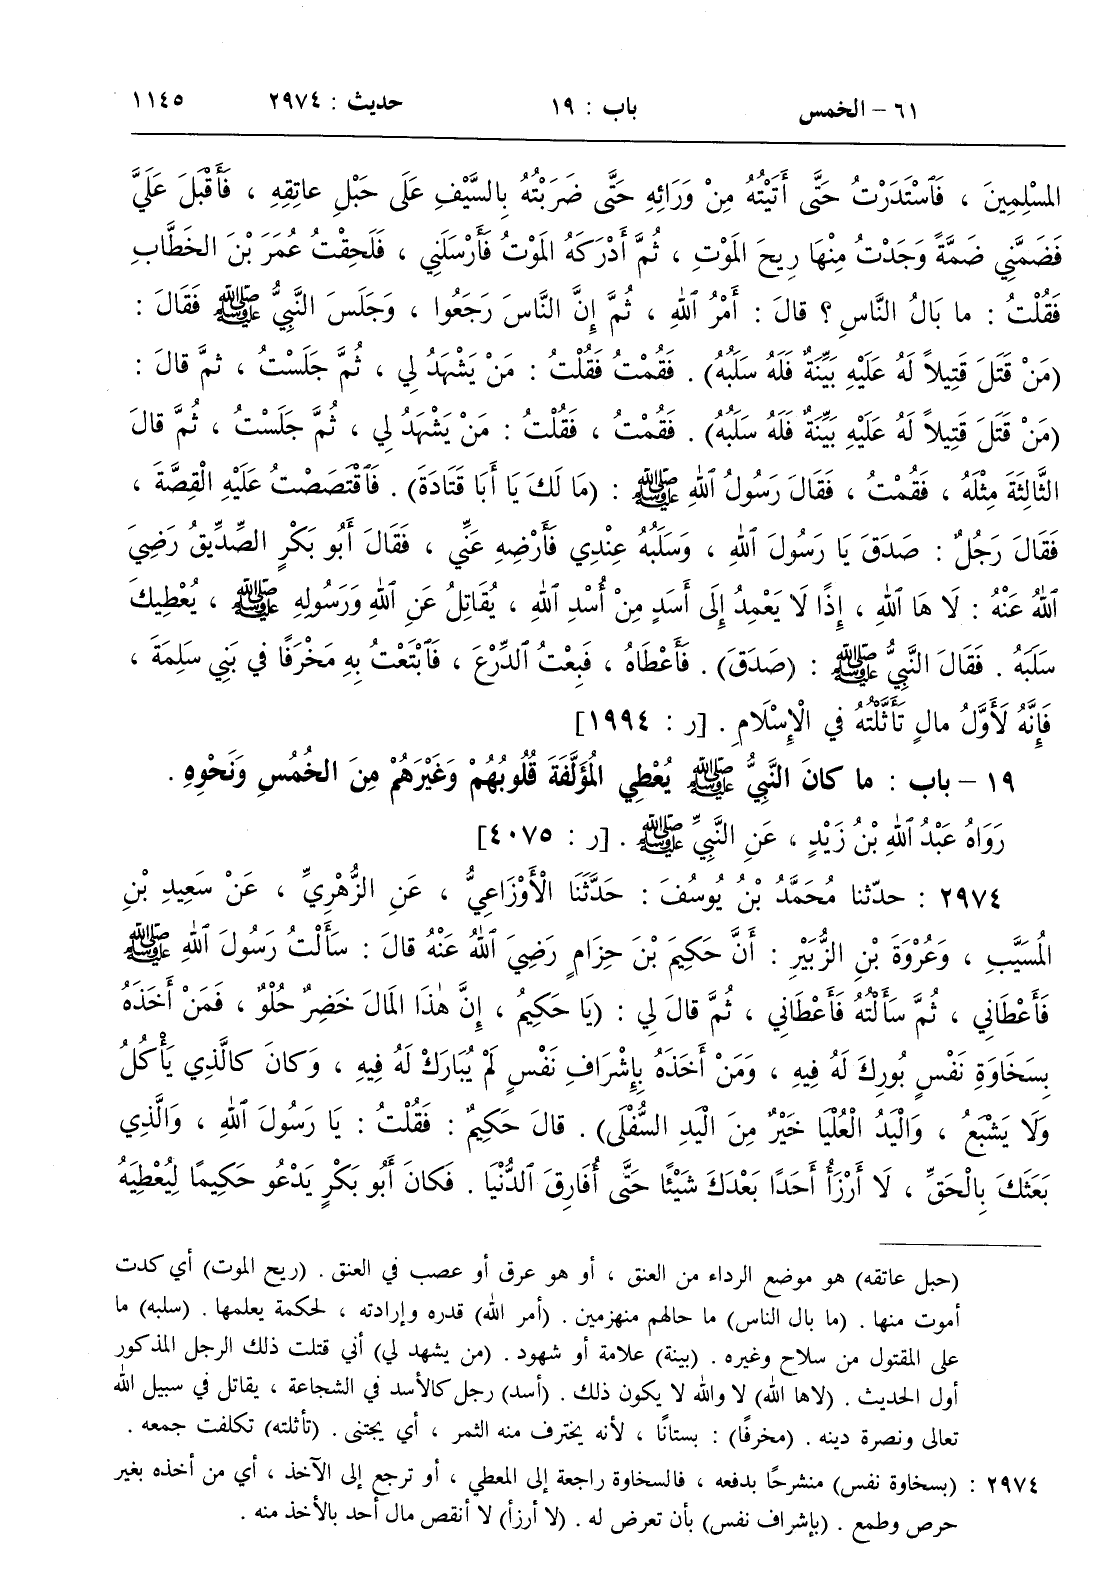 ٦١ - الخمس باب : ١٩ حديث : ٢٩٧٤ ١١٤٥
المسْلِمِينَ ، فَٱسْتَدَرْتُ حَتَّى أَتَيْتُهُ مِنْ وَرَائِهِ حَتَّى ضَرَبْتُهُ بِالسَّيْفِ عَلَى حَبْلِ عاتِقِهِ ، فَأَقْبَلَ عَلَيَّ
فَضَمَّنِي ضَمَّةً وَجَدْتُ مِنْهَا رِيحَ المَوْتِ ، ثُمَّ أَدْرَكَهُ المَوْتُ فَأَرْسَلَنِي ، فَلَحِقْتُ عُمَرَ بْنَ الخَطَّابِ
فَقُلْتُ : ما بَالُ النَّاسِ ؟ قالَ : أَمْرُ ٱللهِ ، ثُمَّ إِنَّ النَّاسَ رَجَعُوا ، وَجَلَسَ النَّبِيُّ ﷺ فَقَالَ :
(مَنْ قَتَلَ قَتِيلاً لَهُ عَلَيْهِ بَيِّنَةٌ فَلَهُ سَلَبُهُ) . فَقُمْتُ فَقُلْتُ : مَنْ يَشْهَدُ لِي ، ثُمَّ جَلَسْتُ ، ثمَّ قالَ :
(مَنْ قَتَلَ قَتِيلاً لَهُ عَلَيْهِ بَيِّنَةٌ فَلَهُ سَلَبُهُ) . فَقُمْتُ ، فَقُلْتُ : مَنْ يَشْهَدُ لِي ، ثُمَّ جَلَسْتُ ، ثُمَّ قالَ
الثَّالِثَةَ مِثْلَهُ ، فَقُمْتُ ، فَقَالَ رَسُولُ ٱللهِ ﷺ : (مَا لَكَ يَا أَبَا قَتَادَةَ) . فَٱقْتَصَصْتُ عَلَيْهِ الْقِصَّةَ ،
فَقَالَ رَجُلٌ : صَدَقَ يَا رَسُولَ ٱللهِ ، وَسَلَبُهُ عِنْدِي فَأَرْضِهِ عَنِّي ، فَقَالَ أَبُو بَكْرٍ الصِّدِّيقُ رَضِيَ
ٱللهُ عَنْهُ : لَا هَا ٱللهِ ، إِذًا لَا يَعْمِدُ إِلَى أَسَدٍ مِنْ أُسْدِ ٱللهِ ، يُقَاتِلُ عَنِ ٱللهِ وَرَسُولِهِ ﷺ ، يُعْطِيكَ
سَلَبَهُ . فَقَالَ النَّبِيُّ ﷺ : (صَدَقَ) . فَأَعْطَاهُ ، فَبِعْتُ ٱلدِّرْعَ ، فَٱبْتَعْتُ بِهِ مَخْرَفًا في بَنِي سَلِمَةَ ،
فَإِنَّهُ لَأَوَّلُ مالٍ تَأَثَّلْتُهُ في الْإِسْلَامِ . [ر : ١٩٩٤]
١٩ - باب : ما كانَ النَّبِيُّ ﷺ يُعْطِي المُؤَلَّفَةَ قُلُوبُهُمْ وَغَيْرَهُمْ مِنَ الخُمُسِ وَنَحْوِهِ .
رَوَاهُ عَبْدُ ٱللهِ بْنُ زَيْدٍ ، عَنِ النَّبِيِّ ﷺ . [ر : ٤٠٧٥]
٢٩٧٤ : حدّثنا مُحَمَّدُ بْنُ يُوسُفَ : حَدَّثَنَا الْأَوْزَاعِيُّ ، عَنِ الزُّهْرِيِّ ، عَنْ سَعِيدِ بْنِ
المُسَيَّبِ ، وَعُرْوَةَ بْنِ الزُّبَيْرِ : أَنَّ حَكِيمَ بْنَ حِزَامٍ رَضِيَ ٱللهُ عَنْهُ قالَ : سَأَلْتُ رَسُولَ ٱللهِ ﷺ
فَأَعْطَانِي ، ثُمَّ سَأَلْتُهُ فَأَعْطَانِي ، ثُمَّ قالَ لِي : (يَا حَكِيمُ ، إِنَّ هٰذَا المَالَ خَضِرٌ حُلْوٌ ، فَمَنْ أَخَذَهُ
بِسَخَاوَةِ نَفْسٍ بُورِكَ لَهُ فِيهِ ، وَمَنْ أَخَذَهُ بِإِشْرَافِ نَفْسٍ لَمْ يُبَارَكْ لَهُ فِيهِ ، وَكانَ كالَّذِي يَأْكُلُ
وَلَا يَشْبَعُ ، وَالْيَدُ الْعُلْيَا خَيْرٌ مِنَ الْيَدِ السُّفْلَى) . قالَ حَكِيمٌ : فَقُلْتُ : يَا رَسُولَ ٱللهِ ، وَالَّذِي
بَعَثَكَ بِالْحَقِّ ، لَا أَرْزَأُ أَحَدًا بَعْدَكَ شَيْئًا حَتَّى أُفَارِقَ ٱلدُّنْيَا . فَكانَ أَبُو بَكْرٍ يَدْعُو حَكِيمًا لِيُعْطِيَهُ
(حبل عاتقه) هو موضع الرداء من العنق ، أو هو عرق أو عصب في العنق . (ريح الموت) أي كدت
أموت منها . (ما بال الناس) ما حالهم منهزمين . (أمر الله) قدره وإرادته ، لحكمة يعلمها . (سلبه) ما
على المقتول من سلاح وغيره . (بينة) علامة أو شهود . (من يشهد لي) أني قتلت ذلك الرجل المذكور
أول الحديث . (لاها الله) لا والله لا يكون ذلك . (أسد) رجل كالأسد في الشجاعة ، يقاتل في سبيل الله
تعالى ونصرة دينه . (مخرفًا) : بستانًا ، لأنه يخترف منه الثمر ، أي يجتنى . (تأثلته) تكلفت جمعه .
٢٩٧٤ : (بسخاوة نفس) منشرحًا بدفعه ، فالسخاوة راجعة إلى المعطي ، أو ترجع إلى الآخذ ، أي من أخذه بغير
حرص وطمع . (بإشراف نفس) بأن تعرض له . (لا أرزأ) لا أنقص مال أحد بالأخذ منه .